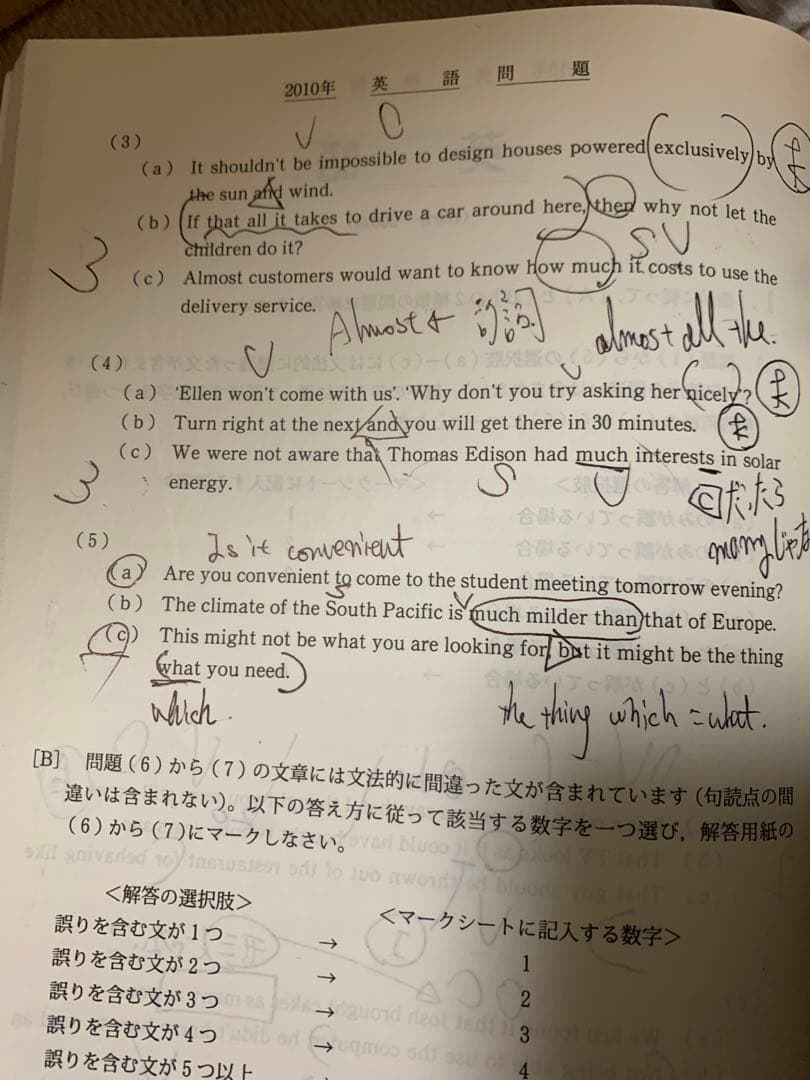 2010年 英 語 問 題
V O
(3)
(a) It shouldn't be impossible to design houses powered exclusively by
the sun and wind.
(b) If that all it takes to drive a car around here, then why not let the
children do it?
S V
3
(c) Almost customers would want to know how much it costs to use the
delivery service.
Almost + 的詞
almost all the.
(4)
V
V
(a) 'Ellen won't come with us'. 'Why don't you try asking her nicely'?
(b) Turn right at the next and you will get there in 30 minutes.
(c) We were not aware that Thomas Edison had much interests in solar
energy.
S V
3
many
(5)
Is it convenient
(a) Are you convenient to come to the student meeting tomorrow evening?
S V
(b) The climate of the South Pacific is much milder than that of Europe.
(c) This might not be what you are looking for, but it might be the thing
what you need.
7
which.
the thing which = what.
[B] 問題(6)から(7)の文章には文法的に間違った文が含まれています(句読点の間
違いは含まれない)。以下の答え方に従って該当する数字を一つ選び,解答用紙の
(6)から(7)にマークしなさい。
<解答の選択肢> <マークシートに記入する数字>
誤りを含む文が1つ → 1
誤りを含む文が2つ → 2
誤りを含む文が3つ → 3
誤りを含む文が4つ → 4
誤りを含む文が5つ以上